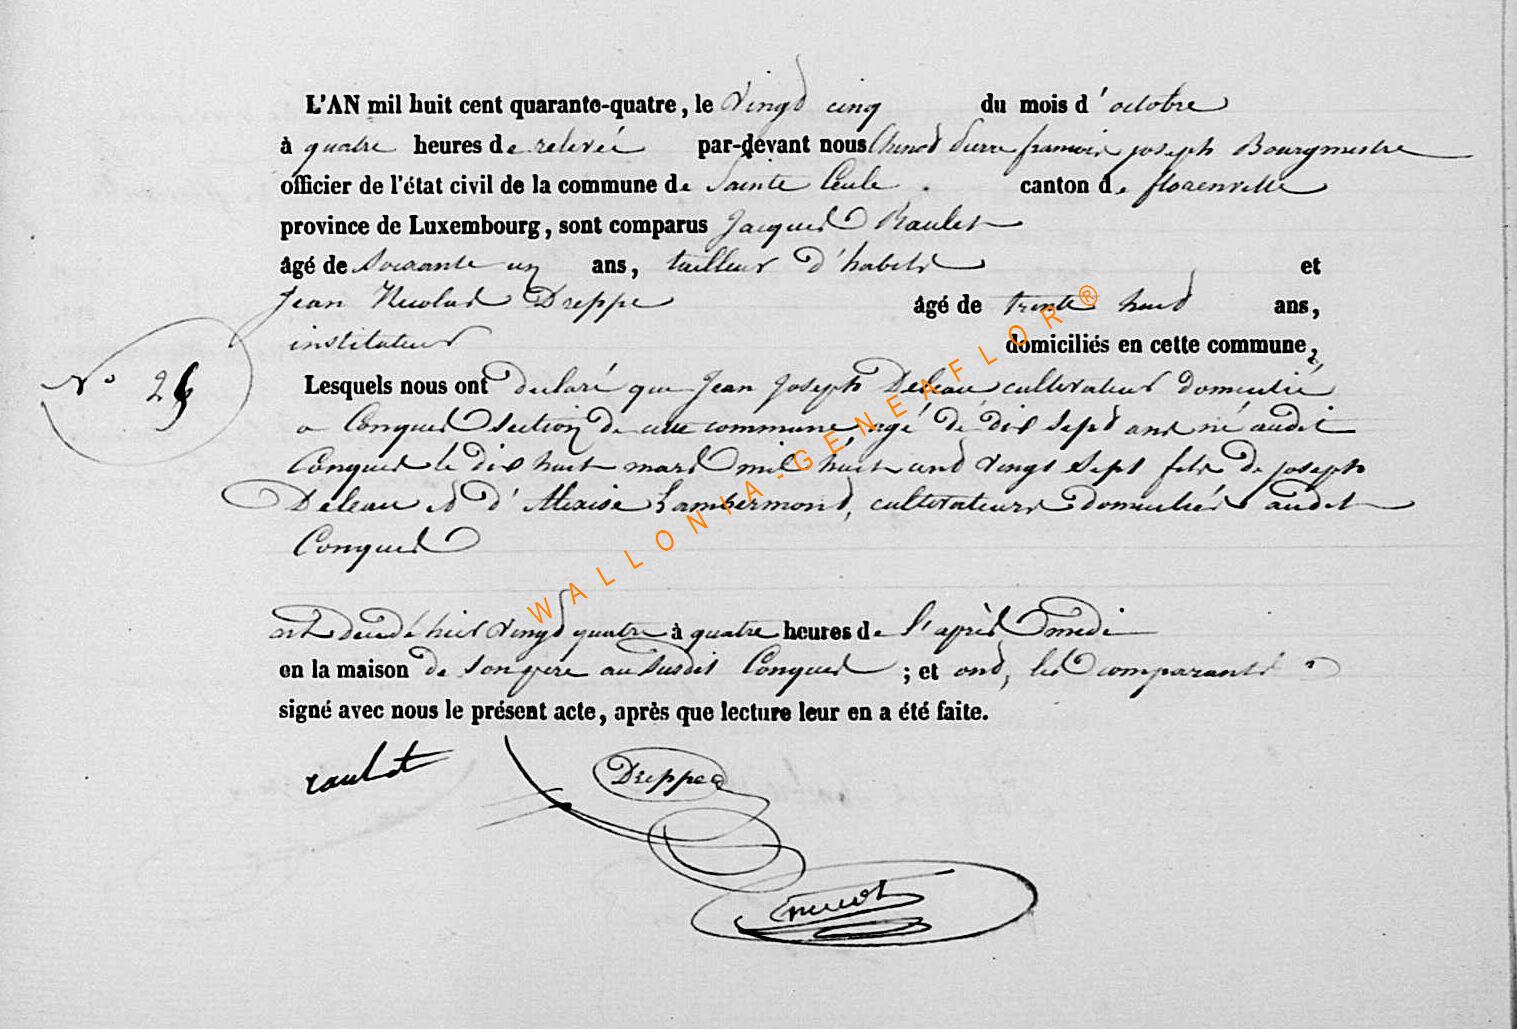 L'AN mil huit cent quarante-quatre, le vingt cinq du mois d'octobre
à quatre heures de relevée par-devant nous Pierre françois joseph Bourgmestre
officier de l'état civil de la commune de Sainte Cecile. canton de florenville
province de Luxembourg, sont comparus Jacques Raulet
âgé de soixante un ans, tailleur d'habits et
Jean Nicolas Dreppe âgé de trente huit ans,
instituteur domiciliés en cette commune,
N° 25
Lesquels nous ont declaré que Jean Joseph Deleau cultivateur domicilié
a Conques section de cette commune agé de dix sept ans né audit
Conques le dix huit mars mil huit cent vingt sept fils de joseph
Deleau et d' Lambermont, cultivateurs domiciliés audit
Conques
est decedé hier vingt quatre à quatre heures de l'après midi
en la maison de son pere au susdit Conques ; et ont, les comparants
signé avec nous le présent acte, après que lecture leur en a été faite.
raulet Dreppe
WALLONIA-GENEAFLOR®